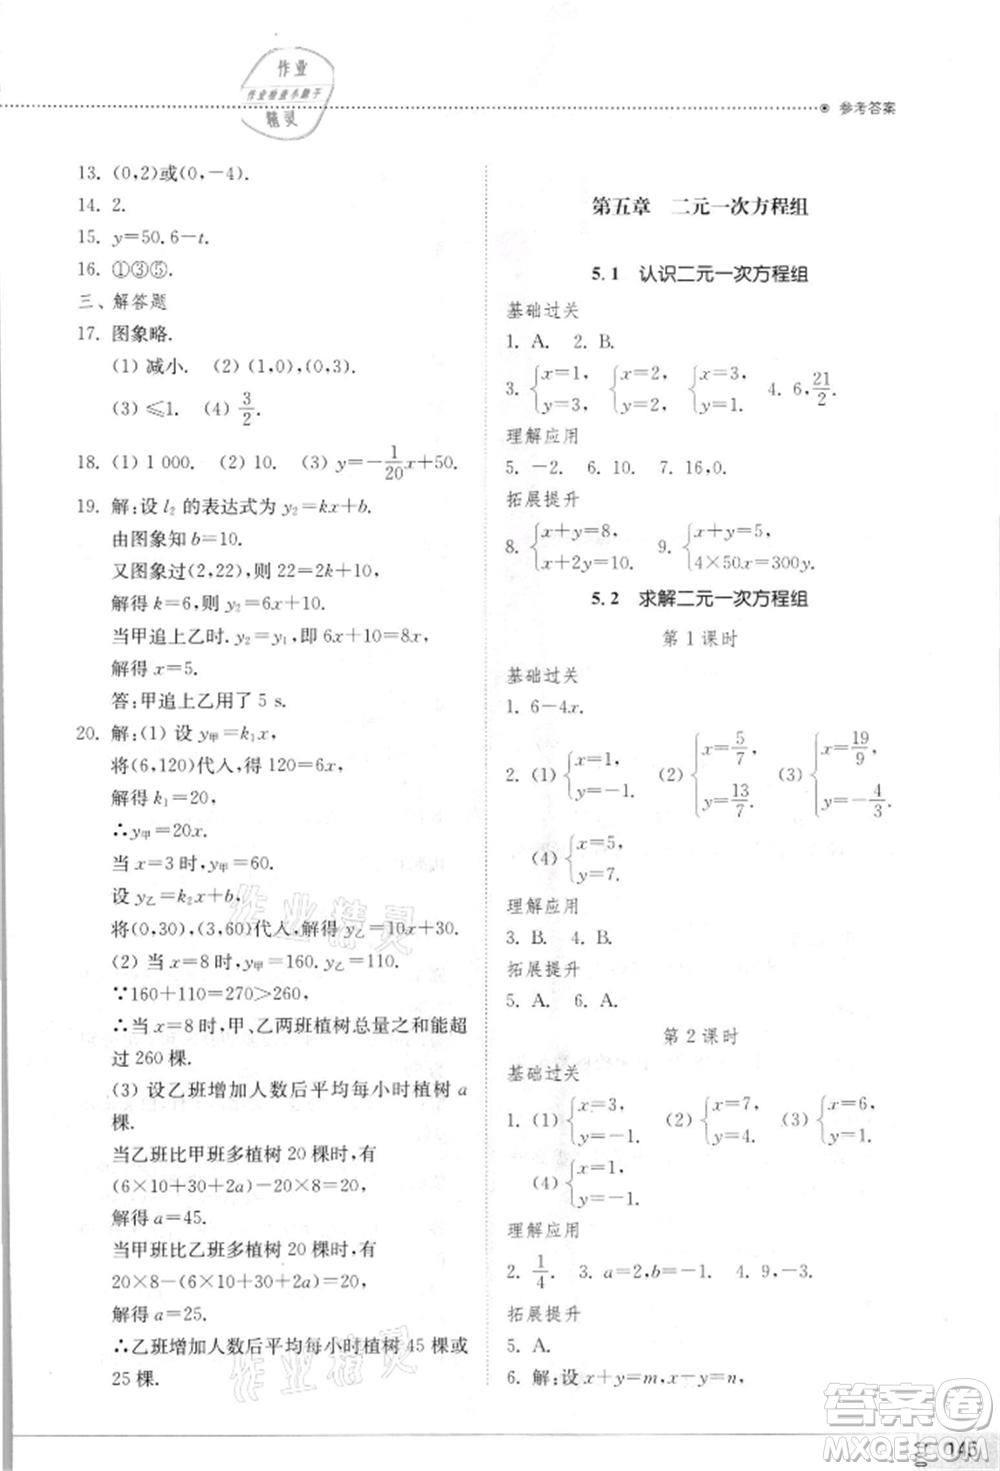 作业
作业检查小助手
精灵
参考答案
13. (0,2)或(0,-4).
14. 2.
15. y=50.6-t.
16. ①③⑤.
三、解答题
17. 图象略.
(1) 减小. (2) (1,0),(0,3)
(3) ≤1. (4) 3/2.
18. (1) 1 000. (2) 10. (3) y=-1/20x+50.
19. 解:设 l₂ 的表达式为 y₂=kx+b.
由图象知 b=10.
又图象过(2,22),则 22=2k+10,
解得 k=6,则 y₂=6x+10.
当甲追上乙时. y₂=y₁,即 6x+10=8x,
解得 x=5.
答:甲追上乙用了 5 s.
20. 解:(1) 设 y甲=k₁x,
将(6,120)代人,得 120=6x,
解得 k₁=20,
∴y甲=20x.
当 x=3 时,y甲=60.
设 y乙=k₂x+b,
将(0,30),(3,60)代人,解得 y乙=10x+30.
(2) 当 x=8 时,y甲=160. y乙=110.
∵160+110=270>260,
∴当 x=8 时,甲、乙两班植树总量之和能超
过 260 棵.
(3) 设乙班增加人数后平均每小时植树 a
棵.
当乙班比甲班多植树 20 棵时,有
(6×10+30+2a)-20×8=20,
解得 a=45.
当甲班比乙班多植树 20 棵时,有
20×8-(6×10+30+2a)=20,
解得 a=25.
∴乙班增加人数后平均每小时植树 45 棵或
25 棵.
第五章 二元一次方程组
5.1 认识二元一次方程组
基础过关
1. A. 2. B.
3. {x=1, y=3, {x=2, y=2, {x=3, y=1. 4. 6, 21/2.
理解应用
5. -2. 6. 10. 7. 16,0.
拓展提升
8. {x+y=8, x+2y=10. 9. {x+y=5, 4×50x=300y.
5.2 求解二元一次方程组
第 1 课时
基础过关
1. 6-4x.
2. (1) {x=1, y=-1. (2) {x=5/7, y=13/7. (3) {x=19/9, y=-4/3.
(4) {x=5, y=7.
理解应用
3. B. 4. B.
拓展提升
5. A. 6. A.
第 2 课时
基础过关
1. (1) {x=3, y=-1. (2) {x=7, y=4. (3) {x=6, y=1.
(4) {x=1, y=-1.
理解应用
2. 1/4. 3. a=2,b=-1. 4. 9,-3.
拓展提升
5. A.
6. 解:设 x+y=m,x-y=n,
作业精灵
作业精灵
答案圈
MXQE.COM
145